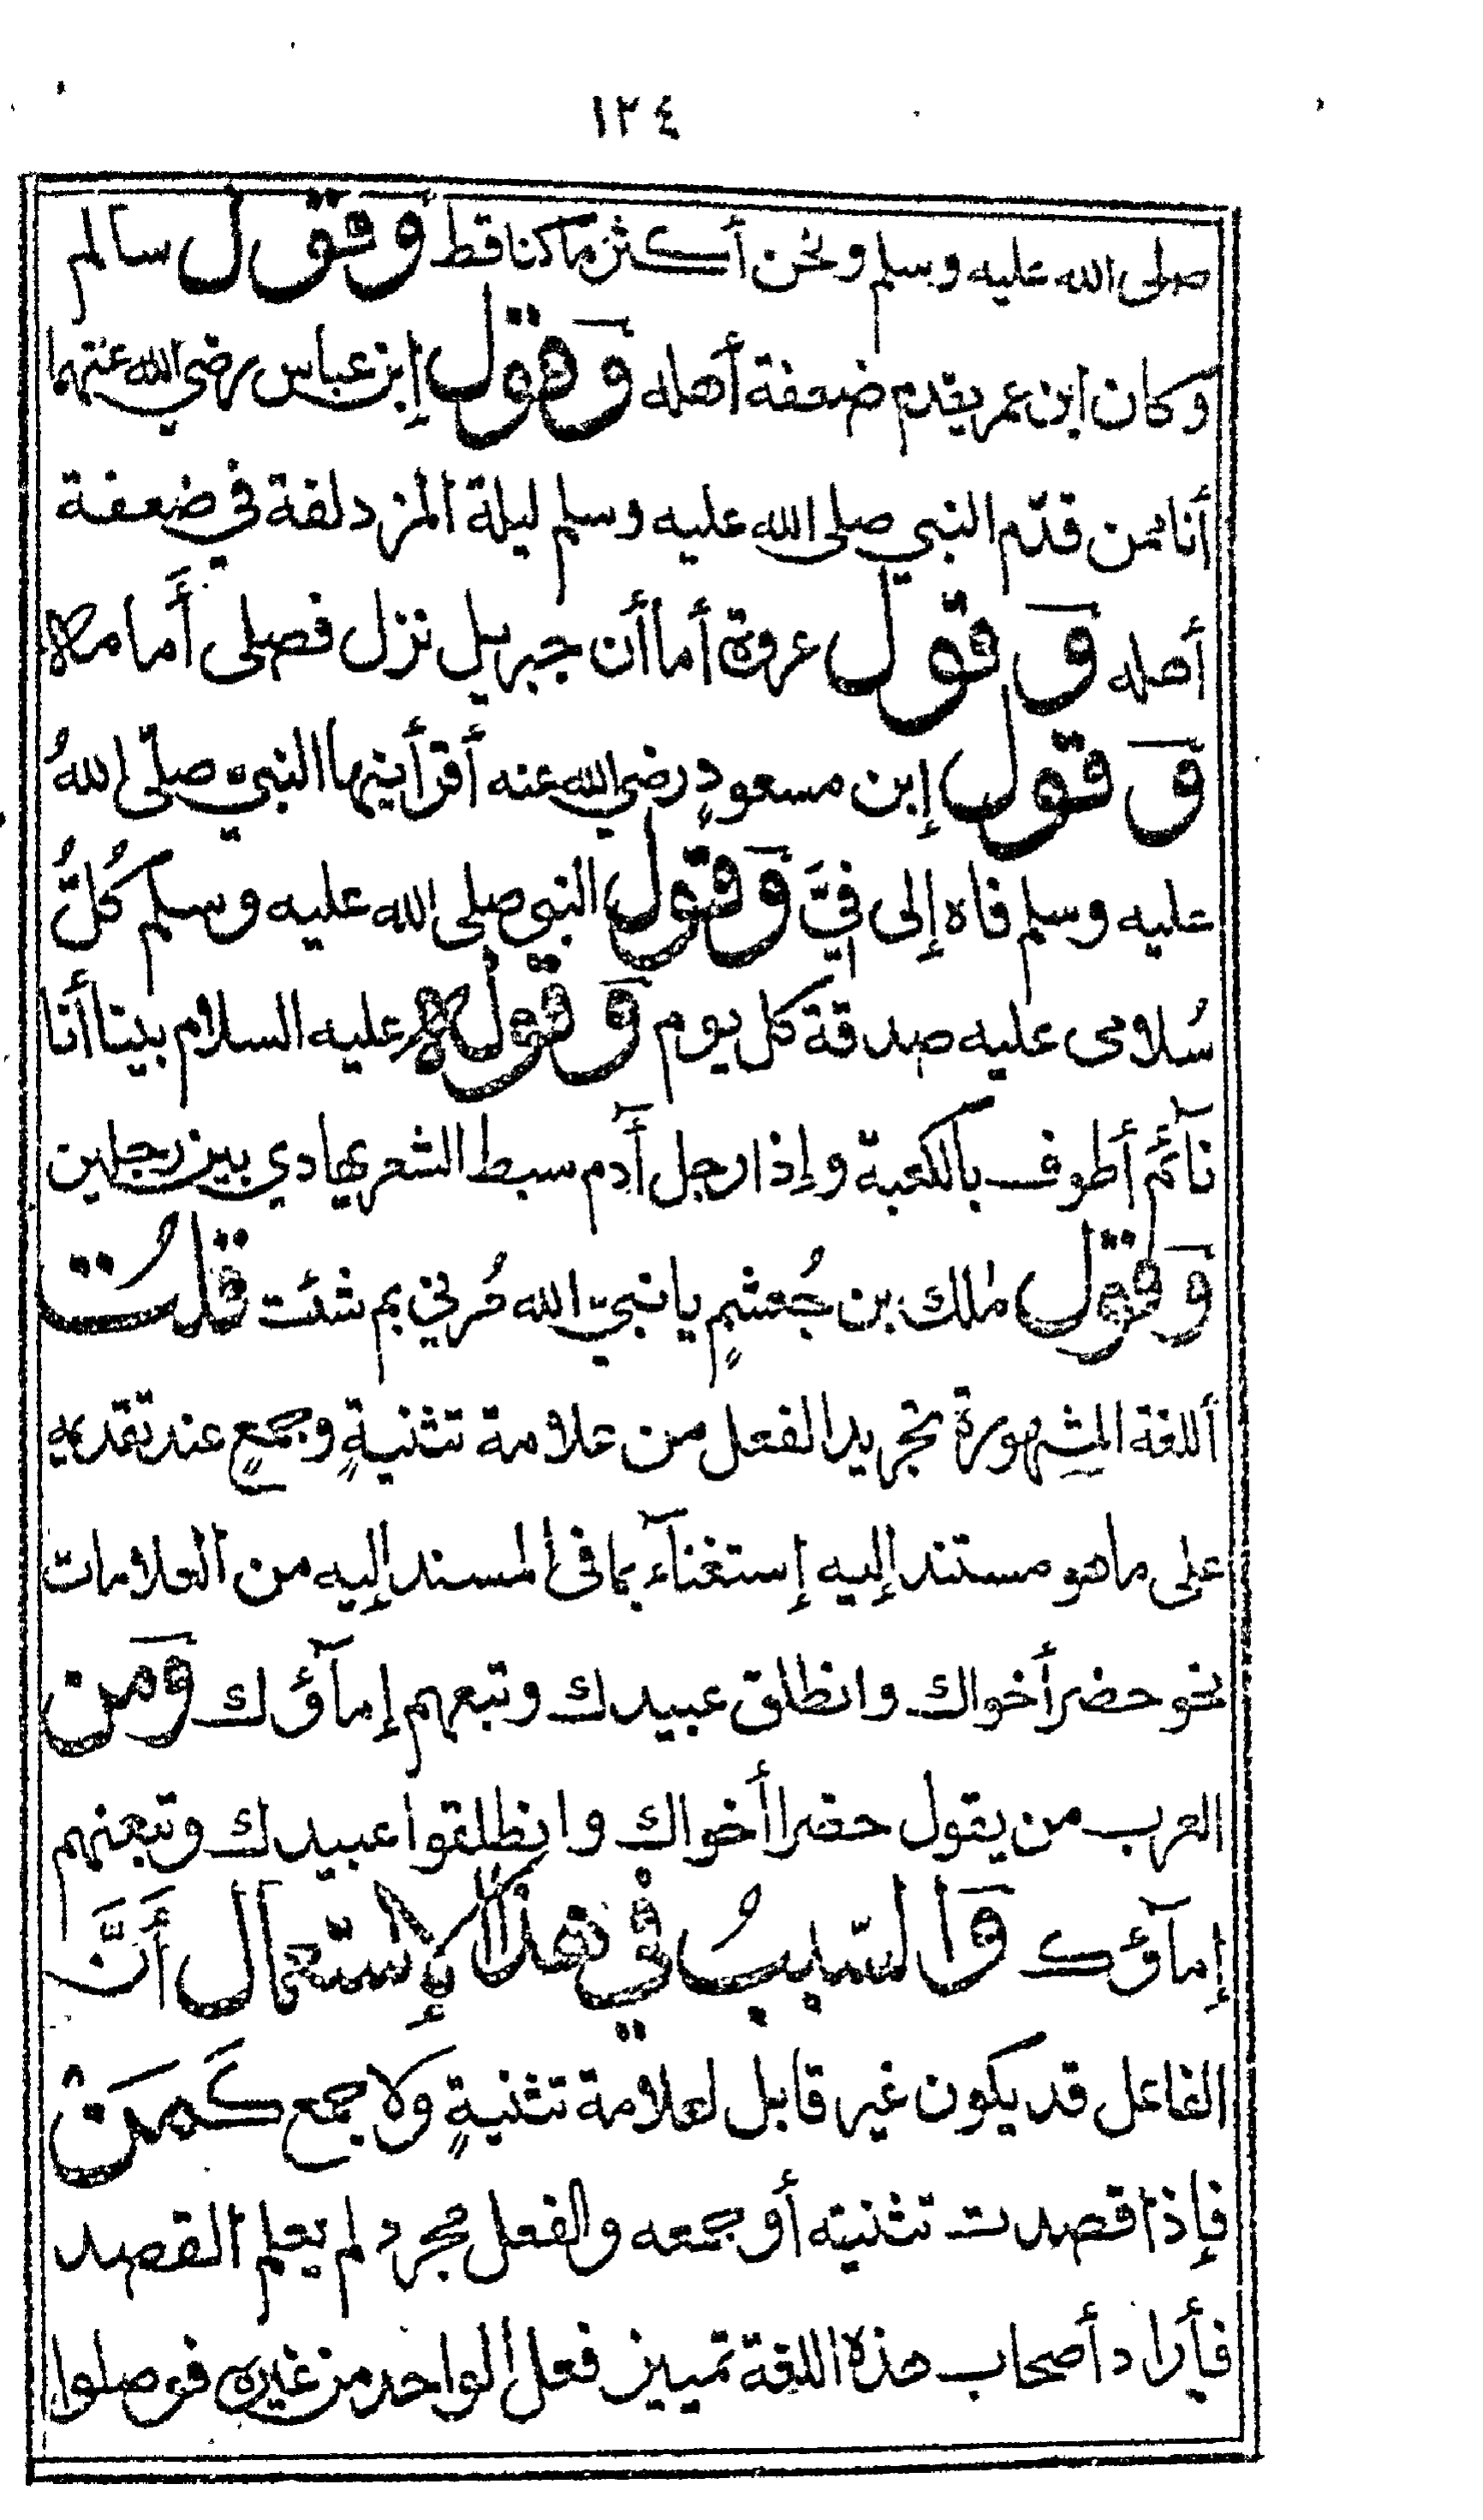 ١٢٤
صلى الله عليه وسلم ونحن أكثر ما كنا قط وَقول سالم
وكان ابن عمر يقدم ضعفة أهله وَقول إبن عباس رضي الله عنهما
أنا ممن قدّم النبي صلى الله عليه وسلم ليلة المزدلفة في ضعفة
أهله وَقول عروة أما أن جبريل نزل فصلى أَمامه
وَقول إبن مسعودٍ رضي الله عنه أقرأنيها النبي صلّى اللهُ
عليه وسلم فاه إلى فيَّ وَقول النبي صلى الله عليه وسلم كُلُّ
سُلامى عليه صدقة كل يوم وَقوله عليه السلام بينا أنا
نآئم أطوف بالكعبة وإذا رجل آدم سبط الشعر يهادي بين رجلين
وَقول مٰلك بن جُعشمٍ يا نبيّ الله مُرني بم شئت قلتُ
أللغة المشهورة تجريد الفعل من علامة تثنيةٍ وجمعٍ عند تقديمه
على ما هو مستند إليه إستغنآء بما في المسند إليه من العلامات
نحو حضر أخواك وانطلق عبيدك وتبعهم إمآؤك وَمن
العرب من يقول حضرا أخواك وانطلقوا عبيدك وتبعنهم
إمآؤك وَالسّببُ في هٰذا الإستعمال أَنَّ
الفاعل قد يكون غير قابل لعلامة تثنيةٍ ولا جمع كَمَنْ
فإذا قصدت تثنيته أو جمعه والفعل مجرد لم يعلم القصد
فأراد أصحاب هذه اللغة تمييز فعل الواحد من غيره فوصلوا